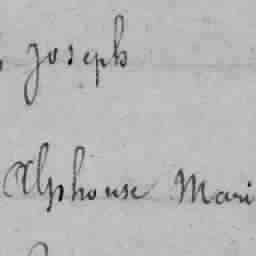 Joseph
Alphonse Mari